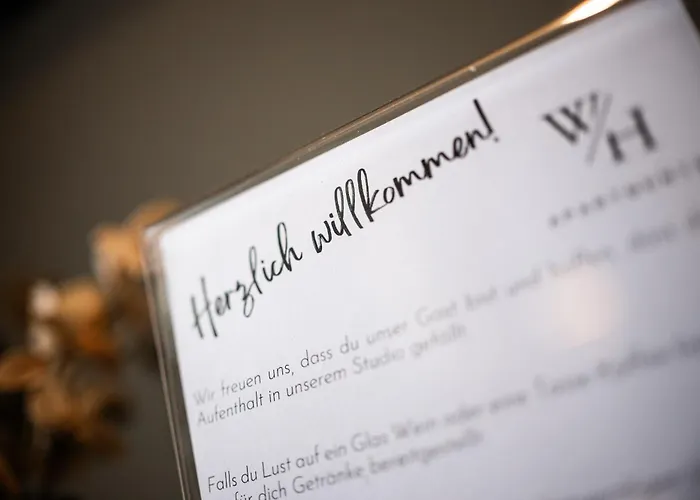 W/H
APARTMENTS
Herzlich willkommen!
Wir freuen uns, dass du unser Gast bist und hoffen, dass
Aufenthalt in unserem Studio gefällt.
Falls du Lust auf ein Glas Wein oder eine Tasse Kaffee
für dich Getränke bereitgestellt.